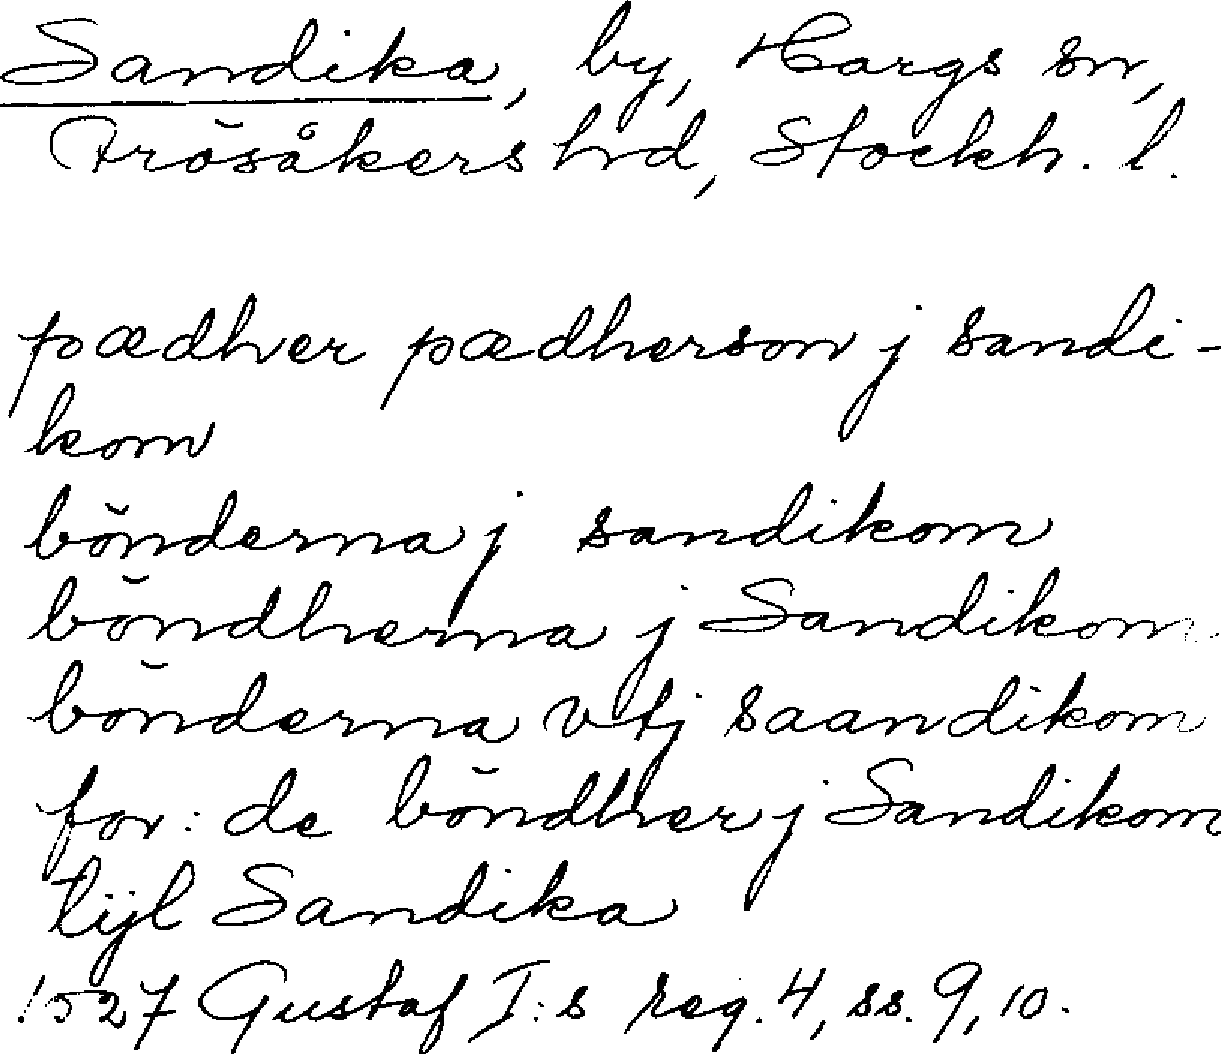 Sandika, by, Hargs sn,
Frösåkers hd, Stockh. l.
pædher pædherson j sandi-
kom
bönderna j sandikom
böndherna j Sandikom
bönderna vtj saandikom
for: de böndher j Sandikom
tijl Sandika
1527 Gustaf I:s reg. 4, ss. 9, 10.